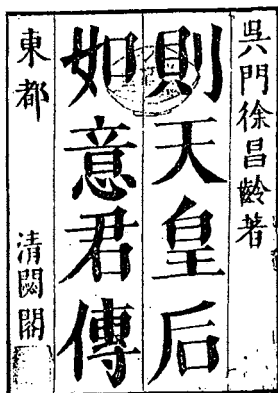 吳門徐昌齡著
則天皇后
如意君傳
東都　清閟閣